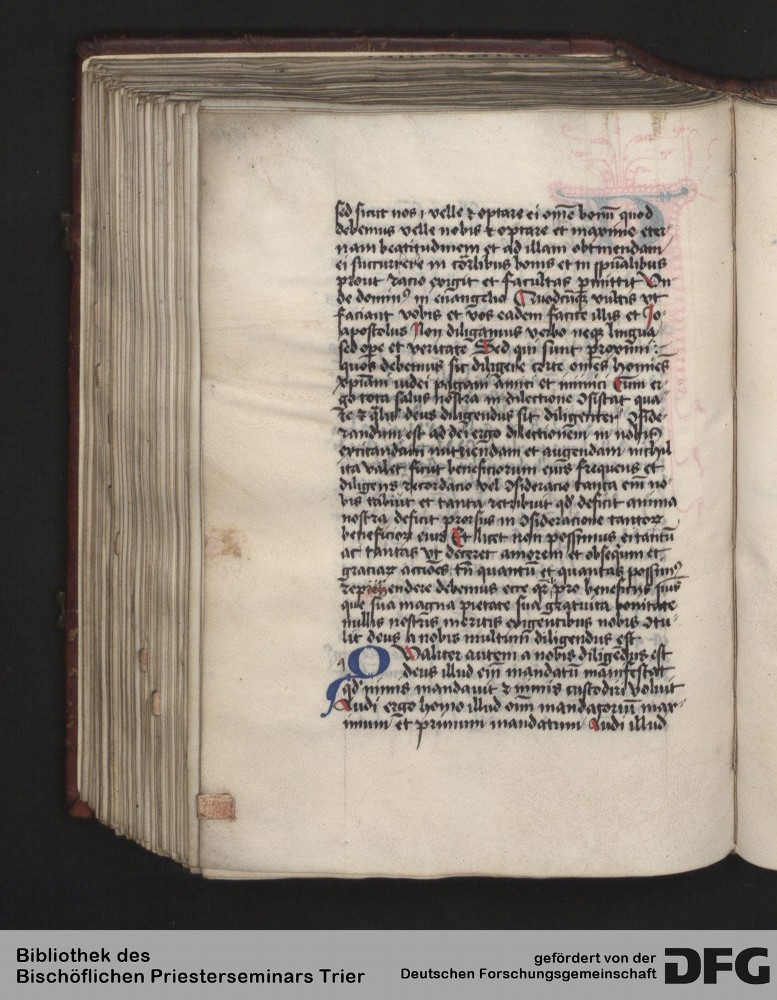 sed sicut nos ⁊ velle ⁊ optare ei om̄e bonū quod
debemus velle nobis ⁊ optare et maxime eter-
nam beatitudinem et ad illam obtinendam
ei succurrere in corꝑalibus bonis et in spūalibus
prout racio exigit et facultas pmittit Vn
de dominꝰ in euangelio Quodcūqꝫ vultis vt
faciant vobis et vos eadem facite illis et Jo
apostolus Non diligamus verbo neqꝫ lingua
sed ope et veritate Sed qui sunt proximi
quos debemus sic diligere certe om̄es hom̄ies
xpiani iudei pagani amici et inimici Cum er-
go tota salus nostra in dilectione ↄsistat qua
re ⁊ qlit̄ deus diligendus sit diligenter ↄside-
randum est ad dei ergo dilectionem in nobis
excitandam nutriendam et augendam nichil
ita valet sicut beneficiorum eius frequens et
diligens recordacio vel ↄsideracio tanta em̄ no-
bis tribuit et tanta retribuit qd̄ deficit anima
nostra deficit prorsus in ↄsideracione tantoꝝ
beneficioꝝ eius Et licet non possimus ei tantū
ac tantas vt deceret amorem et obsequiū et
graciaꝝ acciōes tn̄ quantū et quantas possimꝰ
rependere debemus ecce qr̄ pro beneficiis suis
que sua magna pietate sua gratuita bonitate
nullis nostris meritis exigentibus nobis ↄtu-
lit deus a nobis multum diligendus est
Qualiter autem a nobis diligēdus est
deus illud em̄ mandatū manifestat
qd̄ nimis mandauit ⁊ nimis custodiri voluit
Audi ergo homo illud om̄i mandatorum max-
imum et primum mandatum Audi illud
Bibliothek des
Bischöflichen Priesterseminars Trier
gefördert von der
Deutschen Forschungsgemeinschaft
DFG